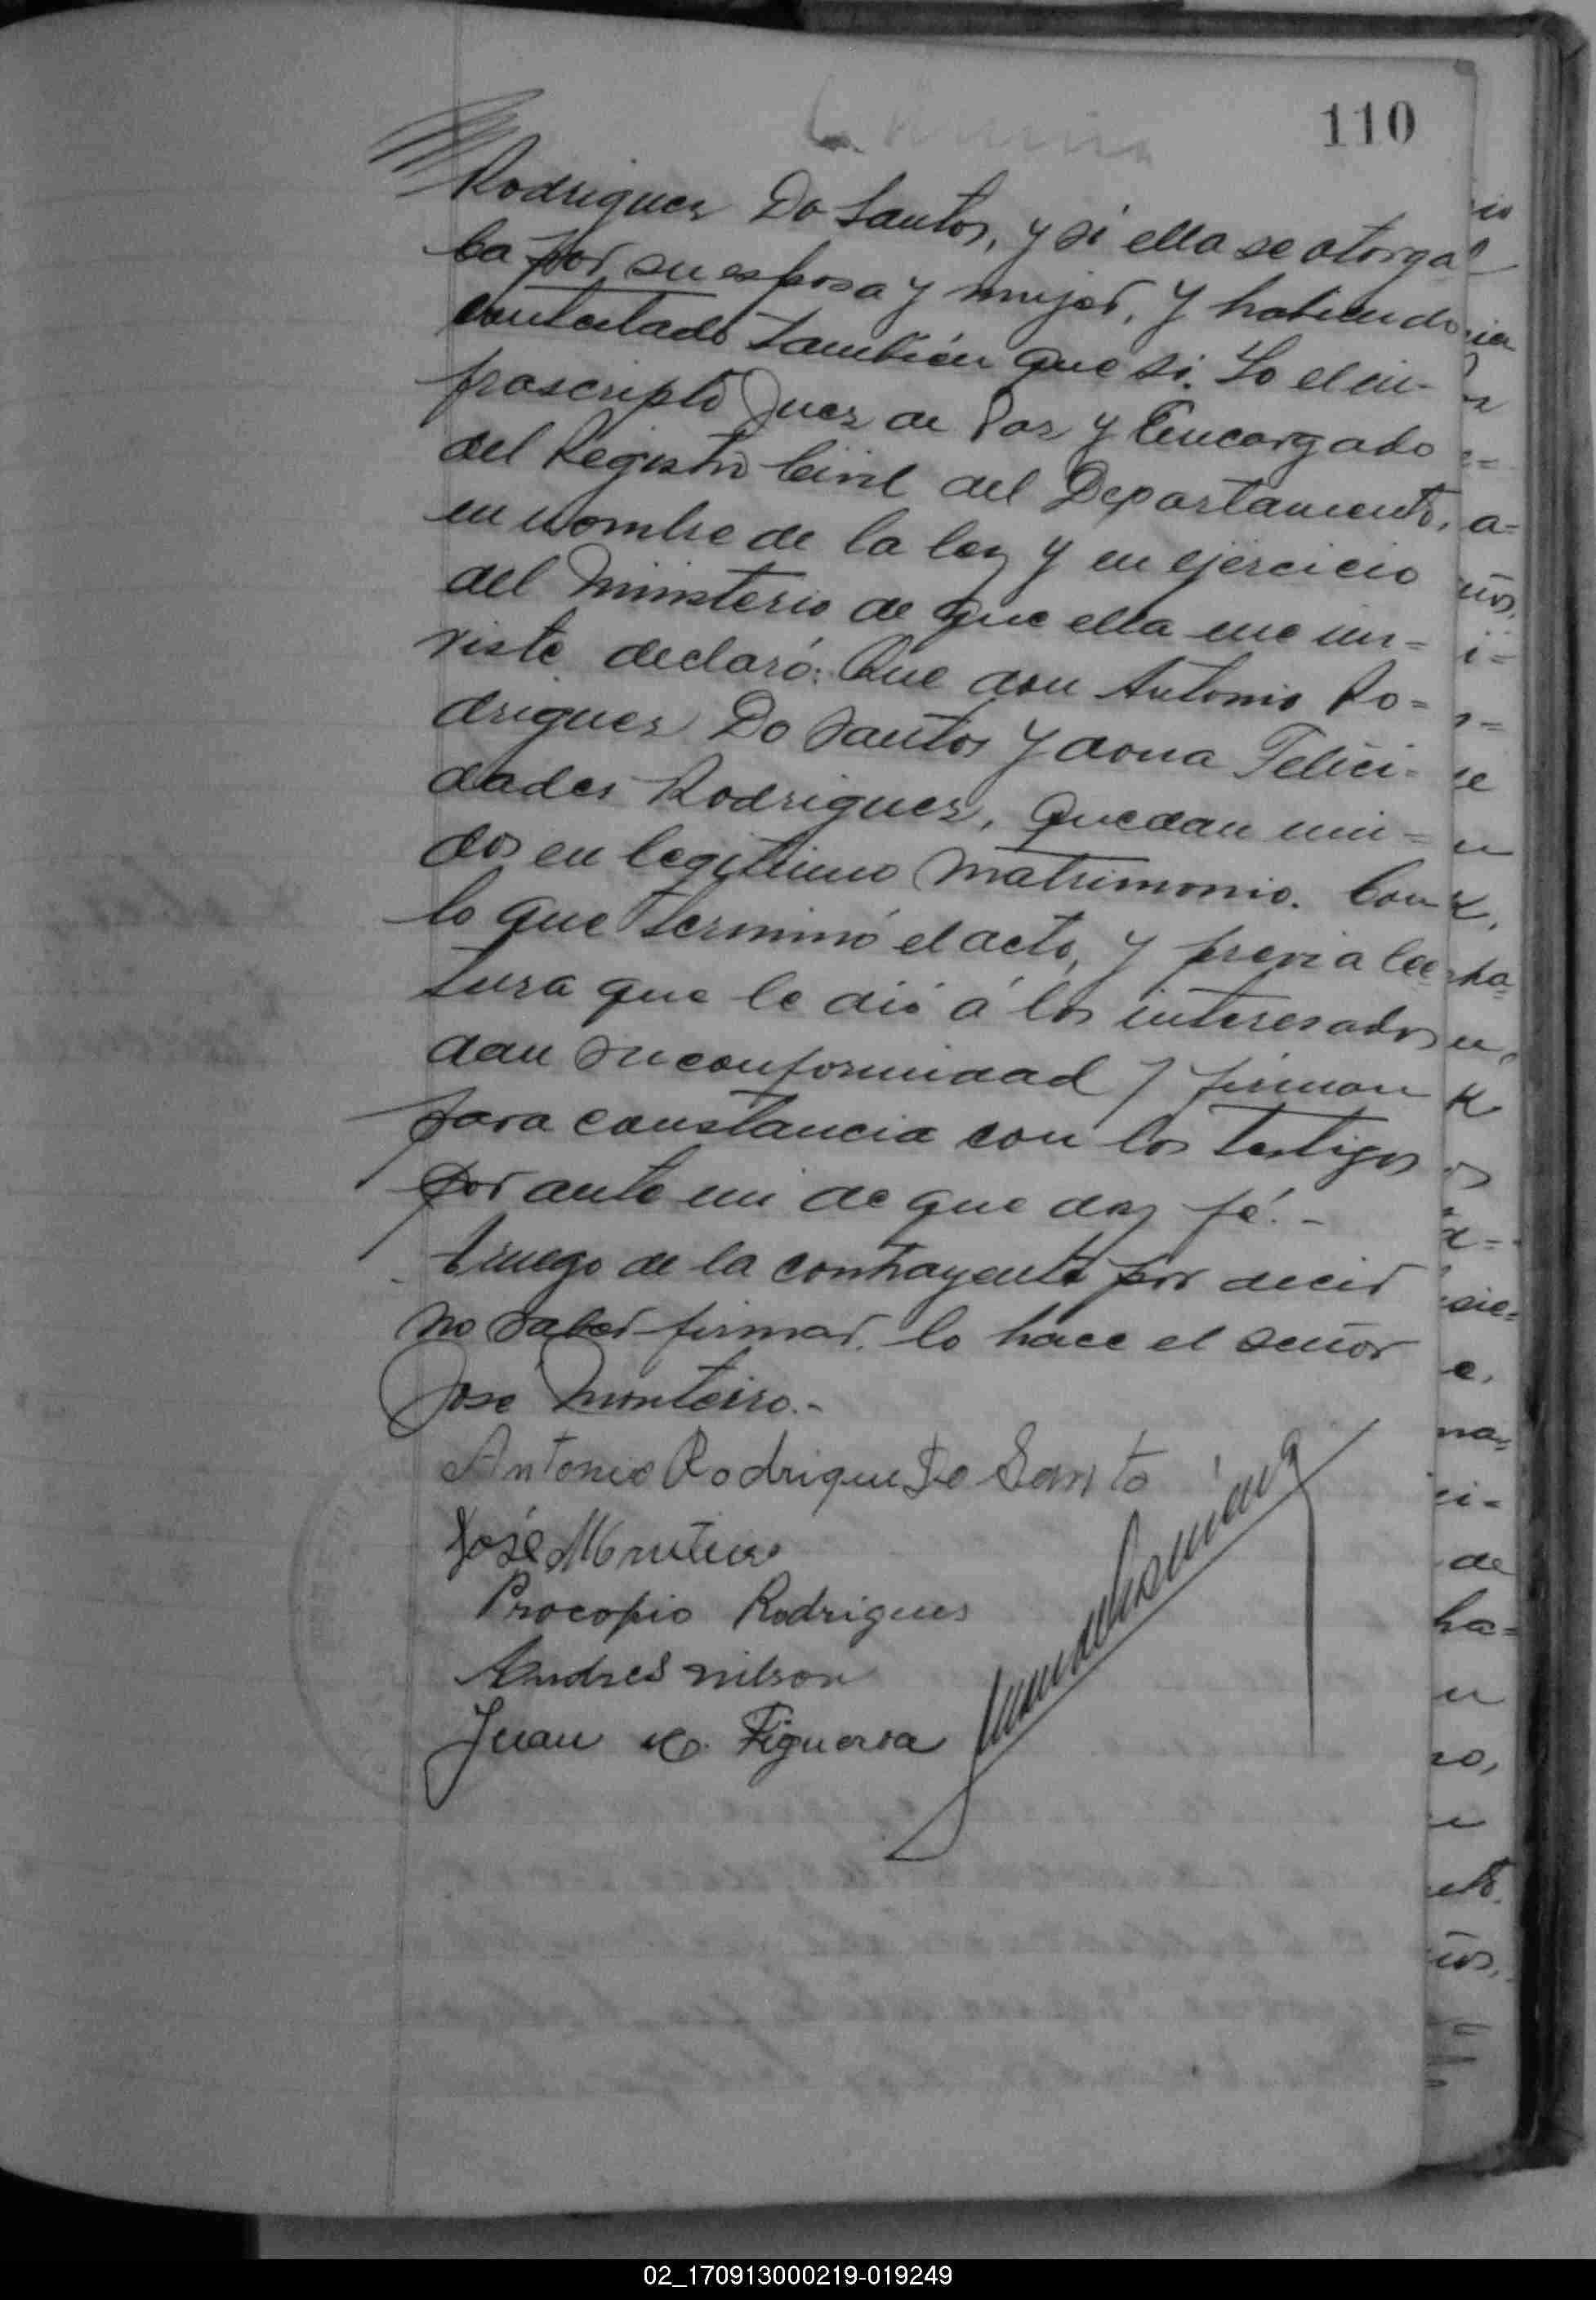 110
Rodriguez Do Santos, y si ella se otorga
ba por su esposa y mujer, y habiendo
contestado también que si. Yo el in-
frascripto Juez de Paz y Encargado
del Registro Civil del Departamento,
en nombre de la ley y en ejercicio
del Ministerio de que ella me in=
viste declaró: Que don Antonio Ro=
driguez Do Santos y dona Felici=
dades Rodriguez, quedan uni=
dos en legitimo matrimonio. Con
lo que terminó el acto, y previa lec
tura que le dió á los interesados
dan su conformidad y firman
para constancia con los testigos
por ante mi de que doy fé.-
A ruego de la contrayente por decir
no saber firmar, lo hace el señor
José Monteiro.-
Antonio Rodrigue Do Santo
José Monteiro
Procopio Rodrigues
Andres nilson
Juan Figueroa
02_170913000219-019249